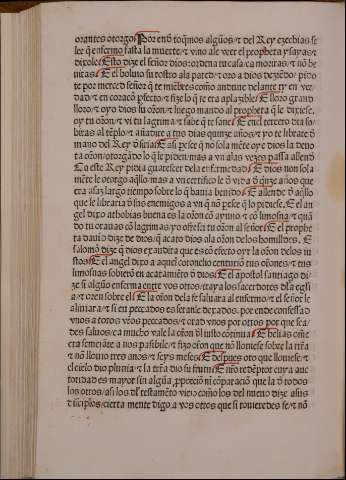 orantes otorgo. Por enđ toq̃mos algũos/ ⁊ del Rey ezechias se
lee q̃ enfermo fasta la muerte/ ⁊ vino ale veer el propheta ysayas/ ⁊
dixole: Esto dize el señor dios: ordena tu casa ca moriras/ ⁊ nõ be
uiras/ E el boluio su rostro ala pared/ ⁊ oro a dios deziẽdo/ pido
te por merced señor q̃ te miẽbres como andune delante ty en ver
dad/ ⁊ en coraçõ p̃fecto/ ⁊ fize lo q̃ te era aplazible/ E lloro grand
lloro/ ⁊ oyo dios su oraciõ/ ⁊ luego mando al propheta q̃ le dixiese,
oy tu oraciõ/ ⁊ vi tu lagrima/ ⁊ sabe q̃ te sane/ E enel tercero dia so
biras al tẽplo/ ⁊ añadire a tus dias quinze años/ ⁊ yo te librare đ
mano del Rey đ siria/ E asi pese q̃ nõ sola mẽte oye dios la deuo
ta oraciõ/ otorgãdo lo q̃ le piden/ mas a vn alas vezes passa allend
Ca este Rey pidia guarescer dela enfermedad/ E dios non sola
mẽte le otorgo aq̃llo/ mas a vn certifico le đ vida đ quinze años que
era asaz largo tiempo sobre lo q̃ hauia beuido/ E allende đ aq̃llo
que le libraria đ sus enemigos a vn q̃ nõ pese q̃ lo pidiese/ E el an
gel dixo a thobias buena es la oraciõ cõ ayuno/ ⁊ cõ limosna/ ⁊ quã
do tu orauas cõ lagrimas/ yo ofresci tu oraciõ al señor/ E el prophe
ta dauid dize de dios/ q̃ acato dios ala oraciõ delos homilldes. E
salomõ dize q̃ dios exaudira que es cõ efecto oyr la oraciõ delos iu
stos/ E el angel dixo a aquel coronelio centurio tus oraciões/ ⁊ tus
limosnas sobierõ en acatamiẽto đ dios/ E el apostol santiago di
ze si alguo enferma entre vos otros/ traya los sacerdotes dela egli
a/ ⁊ oren sobre el/ E la oraciõ dela fe saluara al enfermo/ ⁊ el señor le
aliuiara/ ⁊ si en peccados es seran le dexados. por ende confessad
vnos a otros vr̃os peccados/ ⁊ orad vnos por otros por que sea
des saluos/ ca mucho vale la oraciõ đl iusto cõtinua/ E helias om̃e
era semejante a nos pasibile/ ⁊ fizo oraciõ que nõ lloviese sobre la tr̃ra
⁊ nõ llouio tres anos/ ⁊ seys meses/ E despues oro que lloviese/ ⁊
el cielo dio pluuia/ ⁊ la tr̃ra dio su frutu/ E nr̃o redẽptor cuya auc
toridad es mayor sin algũa ꝓporciõ ni cõparaciõ que la đ todos
los otros/ asi los đl testamẽto viejo como los del nueuo dize asus
discipulos/ cierta mente digo a vos otros que si touieredes fe/ ⁊ nõ